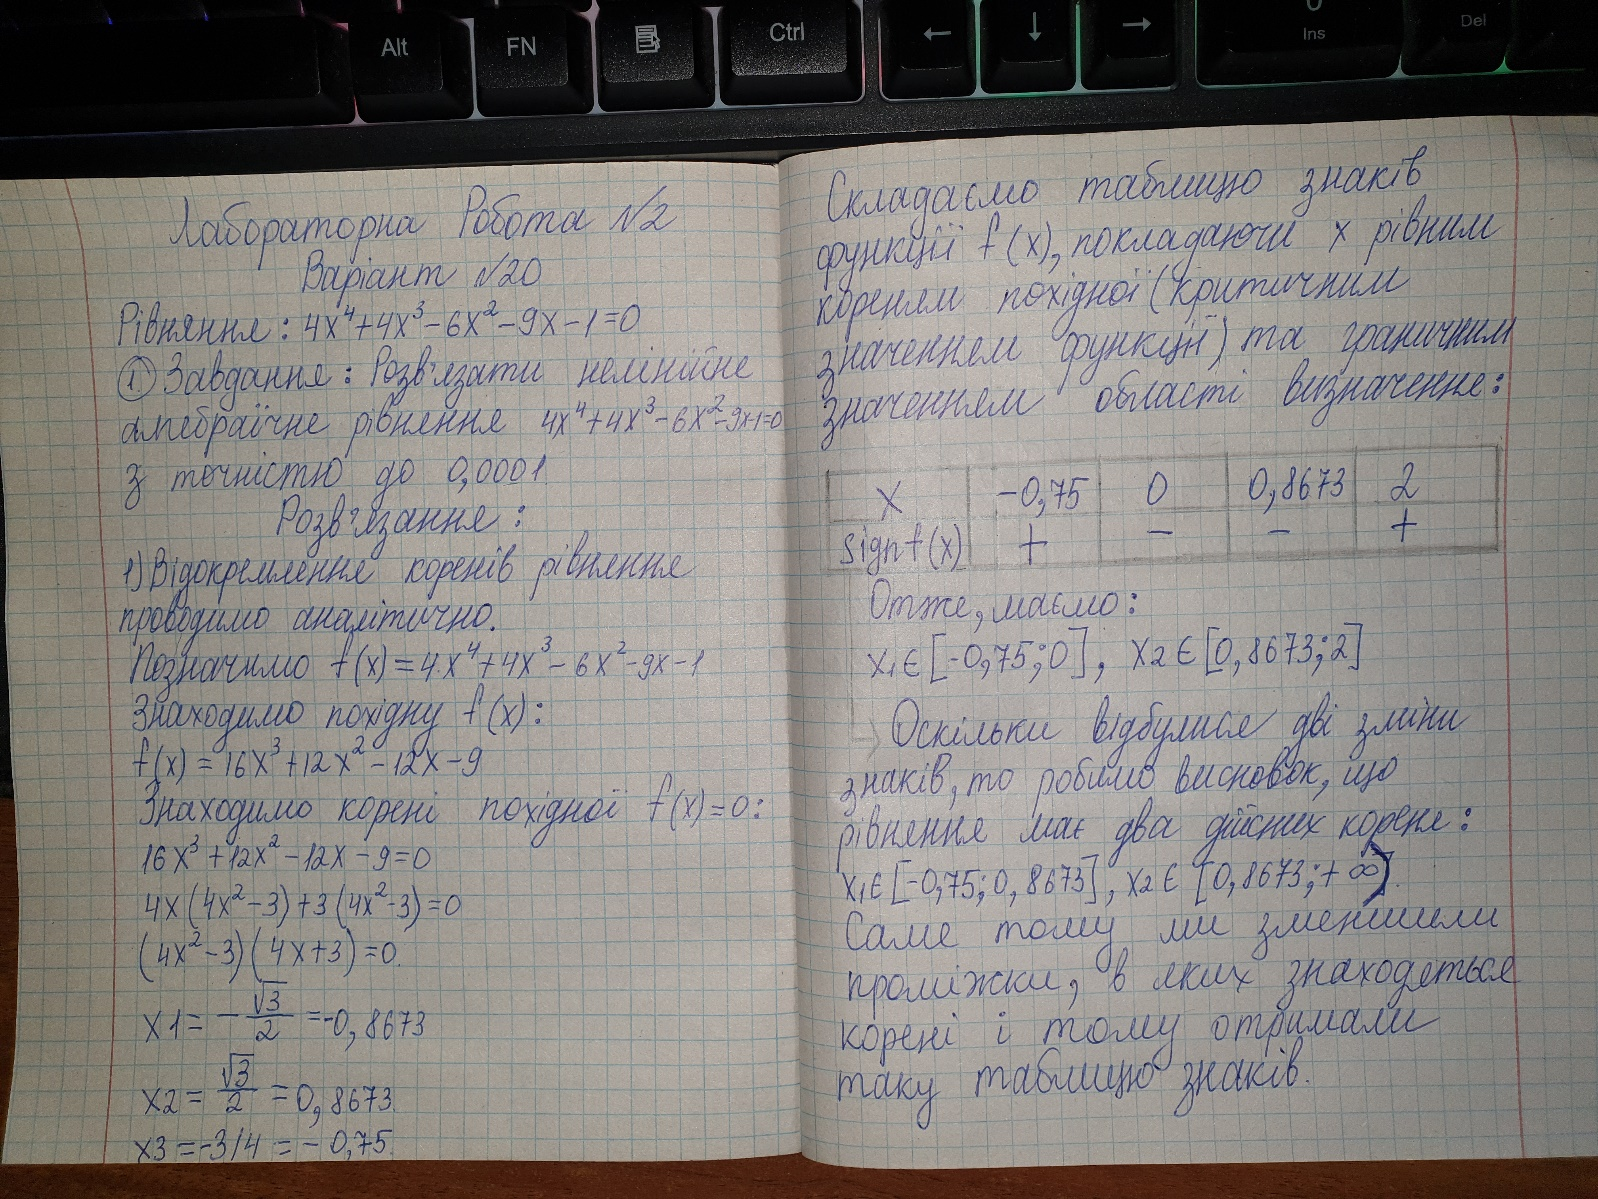 Alt
FN
Ctrl
←
↓
→
0
Ins
Del
Лабораторна Робота №2
Варіант №20
Рівняння: 4x⁴+4x³-6x²-9x-1=0
① Завдання: Розв'язати нелінійне
алгебраїчне рівняння 4x⁴+4x³-6x²-9x-1=0
з точністю до 0,0001
Розв'язання:
1) Відокремлення коренів рівняння
проводимо аналітично.
Позначимо f(x)=4x⁴+4x³-6x²-9x-1
Знаходимо похідну f(x):
f(x)=16x³+12x²-12x-9
Знаходимо корені похідної f(x)=0:
16x³+12x²-12x-9=0
4x(4x²-3)+3(4x²-3)=0
(4x²-3)(4x+3)=0.
x1=-√3/2=-0,8673
x2=√3/2=0,8673.
x3=-3/4=-0,75.
Складаємо таблицю знаків
функції f(x), покладаючи x рівним
кореням похідної (критичним
значенням функції) та граничним
значенням області визначення:
x -0,75 0 0,8673 2
sign f(x) + - - +
Отже, маємо:
x1∈[-0,75;0], x2∈[0,8673;2]
Оскільки відбулися дві зміни
знаків, то робимо висновок, що
рівняння має два дійсних кореня:
x1∈[-0,75;0,8673], x2∈[0,8673;+∞).
Саме тому ми зменшили
проміжки, в яких знаходяться
корені і тому отримали
таку таблицю знаків.